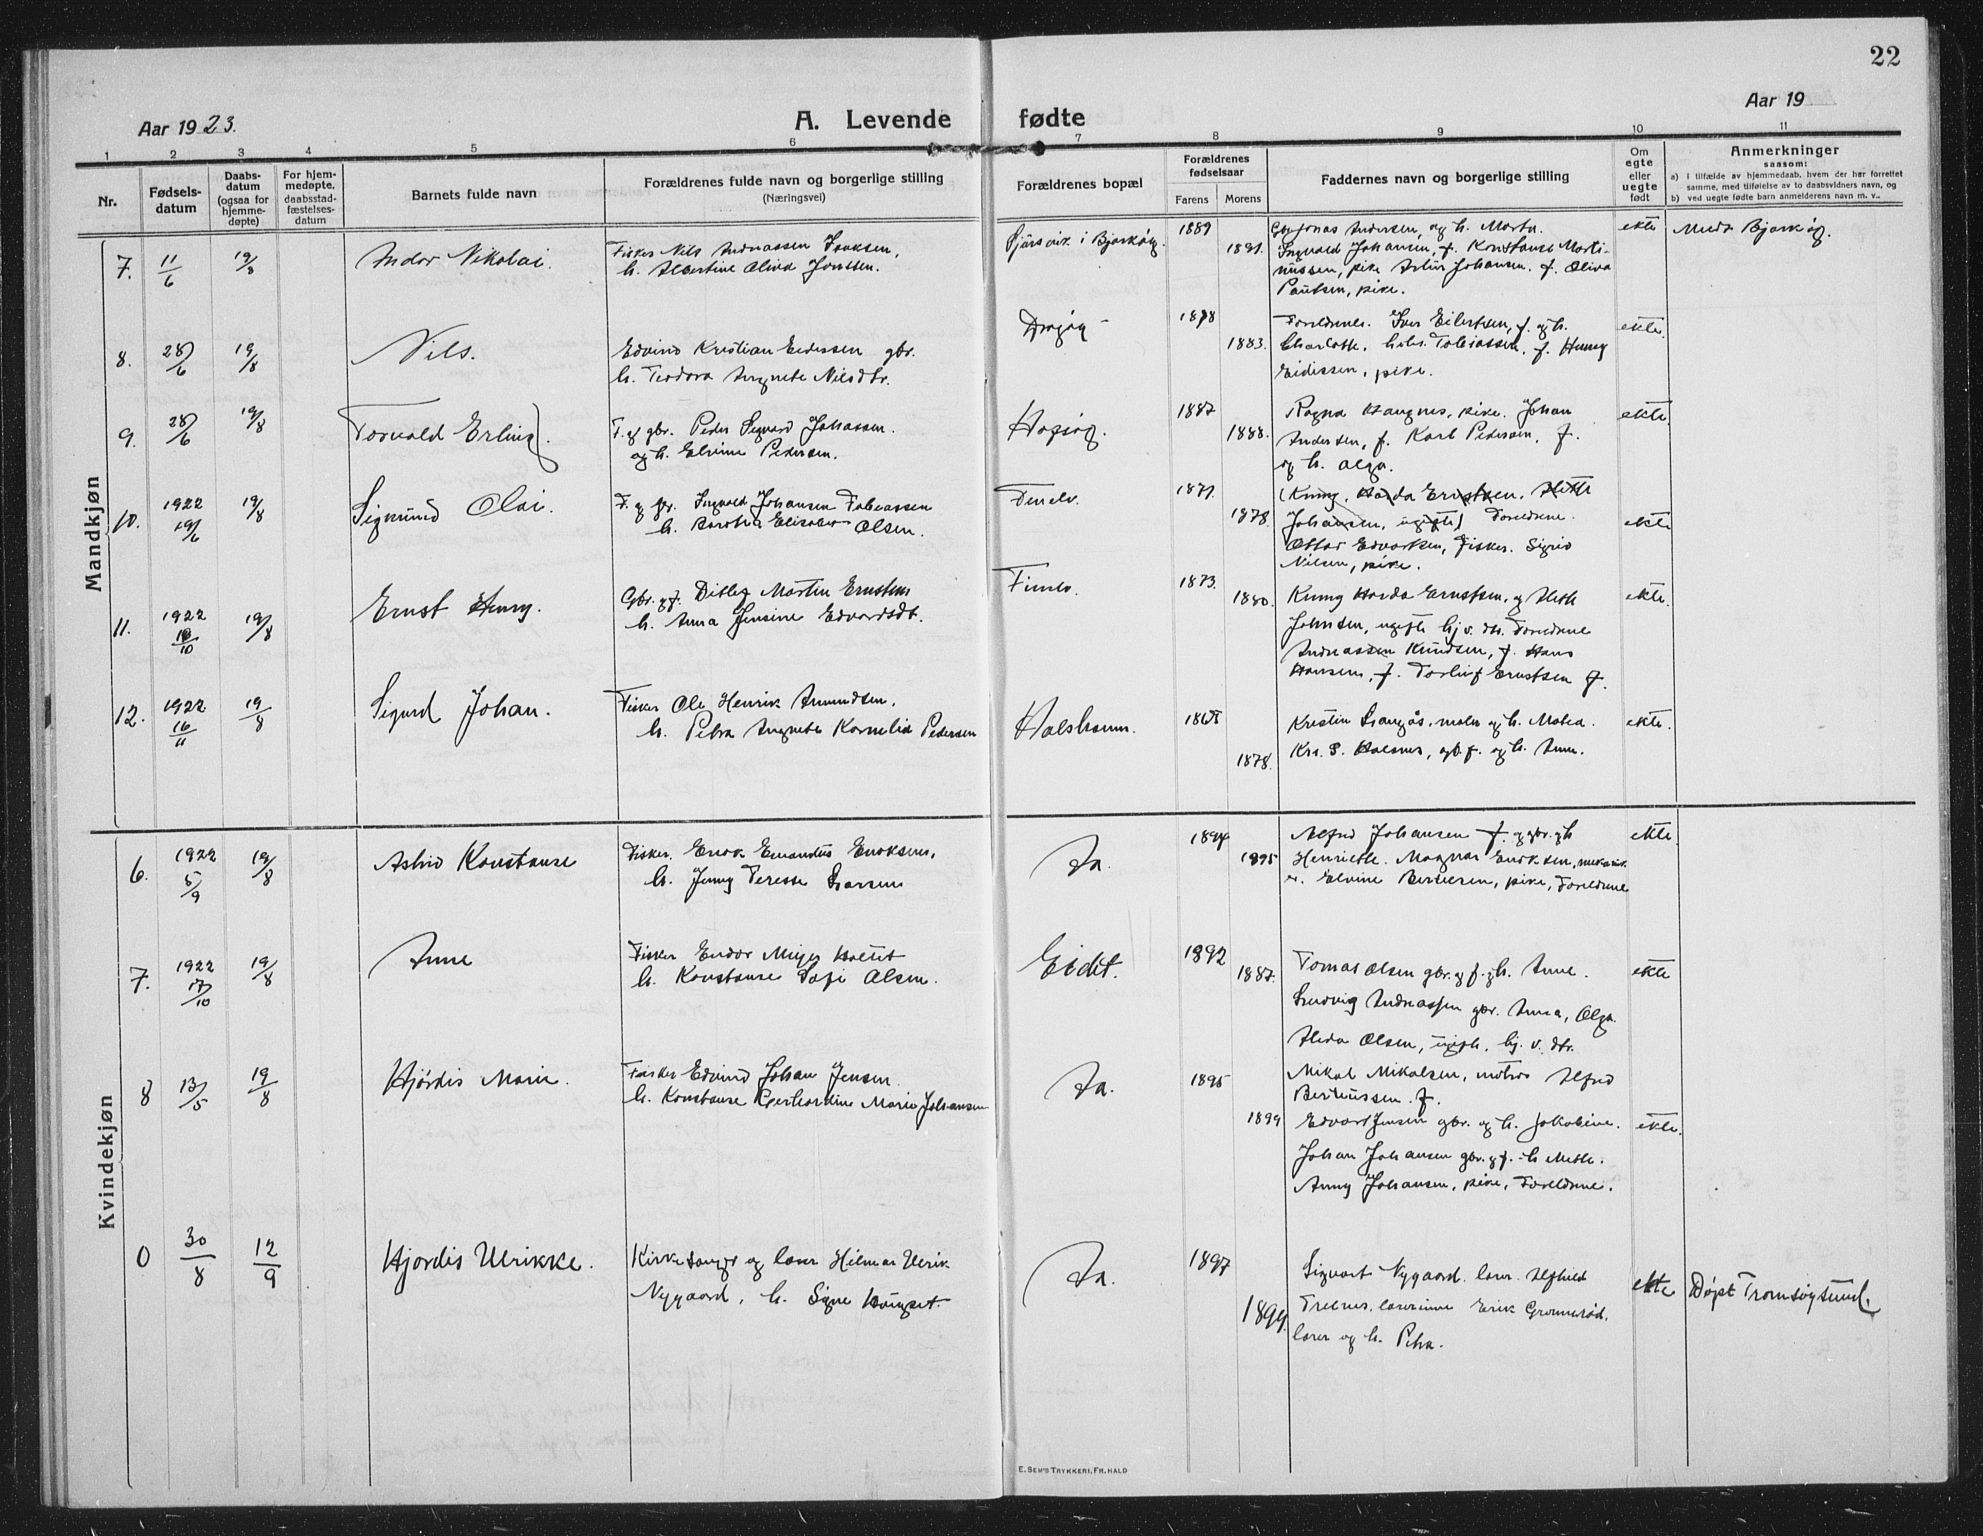 22
Aar 1923.
A. Levende fødte
Aar 19
1 2 3 4 5 6 7 8 9 10 11
Nr.
Fødsels-
datum
Daabs-
datum
(ogsaa for
hjemme-
døpte)
For hjem-
medøpte,
daabsstad-
fæstelses-
datum
Barnets fulde navn
Forældrenes fulde navn og borgerlige stilling
(Næringsvei)
Forældrenes bopæl
Forældrenes
fødselsaar
Farens Morens
Faddernes navn og borgerlige stilling
Om
egte
eller
uegte
født
Anmerkninger
saasom:
a) i tilfælde av hjemmedaab, hvem der har forrettet
samme, med tilføielse av to daabsvidners navn, og
b) ved uegte fødte barn anmelderens navn m. v..
Mandkjøn
7. 11/6 19/8 Indor Nikolai.
Fisker Nils Andreassen Isaksen,
h. Albertine Oliva
i Bjarkøy.
1889
1891.
Jonas Andersen, og h. Marta.
Ingvald Johansen, f. Konstanse Marti-
nussen, pike Artur Johansen. f. Oliva
Paulsen, pike.
ekte
Bjarkøy.
8. 28/6 19/8 Nils.
Edvind Kristian Eidissen gbr.
h. Teodora Angnete Nilsdtr.
Drøjøy
1878
1883.
Foreldrene. Iver Eilertsen, f. og h.
Charlotte. Tobiassen, f. Henny
Eidissen, pike.
ekte.
9. 28/6 19/8 Torvald Erling.
F. og gbr. Peder Sigvard Johansen.
og h. Elvine Pedersen.
1887
1888.
Ragna Haugnes, pike. Johan
Andersen, f. Karl Pedersen, f.
og h. Olga.
ekte
10. 1922 19/6 19/8 Sigmund Olai.
F. og gbr. Ingvald Johansen Tobiassen
h. Dorothea Elisabet Olsen.
Tenelv.
1871.
1878.
(Kinny, Harda Ernstsen. Mette
Johansen, ugifte) Foreldrene.
Ottar Edvartsen, Fisker. Sigrid
Nilsen, pike.
ekte
11. 1922 18/10 19/8 Ernst Henry.
Gbr. og f. Ditlev Martin Ernstsen
h. Anna Jensine Edvardsdt.
1873.
1880.
Kinny Harda Ernstsen, og Mette
Johnsen, ugifte hj. v. dtr. Foreldrene
Andreassen Knudsen, f. Hans
Hansen, f. Torleif Ernstsen f.
ekte.
12. 1922 16/11 19/8 Sigurd Johan.
Fisker Ole Henrik Amundsen,
h. Petra Angnete Kornelia Pedersen
1868
1878.
Kristin Langås, maler og h. Matea.
Krs. P. Halsnes, gb. f. og h. Anne.
ekte.
Kvindekjøn
6. 1922 5/9 19/8 Astrid Konstanse
Fisker. Enok Emandus Enoksen,
h. Jenny Teresse Larsen
Sa.
1894
1895
Alfred Johansen f. og gbr. og h.
Henriette. Magnar Enoksen,
Elvine Bertiusen, pike, Foreldrene
ekte.
7. 1922 17/10 19/8 Anne
Fisker Endor Meyer
h. Konstanse Sofie Olsen.
Eidet.
1892
1887.
Tomas Olsen gbr. og f. og h. Anne.
Ludvig Andreassen gbr. Anna, Olga.
Alida Olsen, ugifte. hj. v. dtr.
ekte
8 13/5 19/8 Hjørdis Marie.
Fisker Edvind Johan Jensen.
h. Konstanse Gjerhardine Marie Johansen
Sa.
1895
1899
Mikal Mikalsen, matros Alfred
Bertiussen. f.
Edvart Jensen gbr. og h. Jakobine.
Johan Johansen gbr. og f. h. Mette.
Anny Johansen, pike, Foreldrene.
ekte.
0 30/8 12/9 Hjordis Ulrikke.
Kirkesanger og lærer Hilmar Ulrik
Nygaard, h. Signe
Sa.
1897
1899.
Sigvart Nygaard. lærer. Alfhild
lærerinne Erik Grønnerød,
lærer og h. Petra.
ekte
Døpt Tromsøysund.
E. SEM'S TRYKKERI, FR. HALD